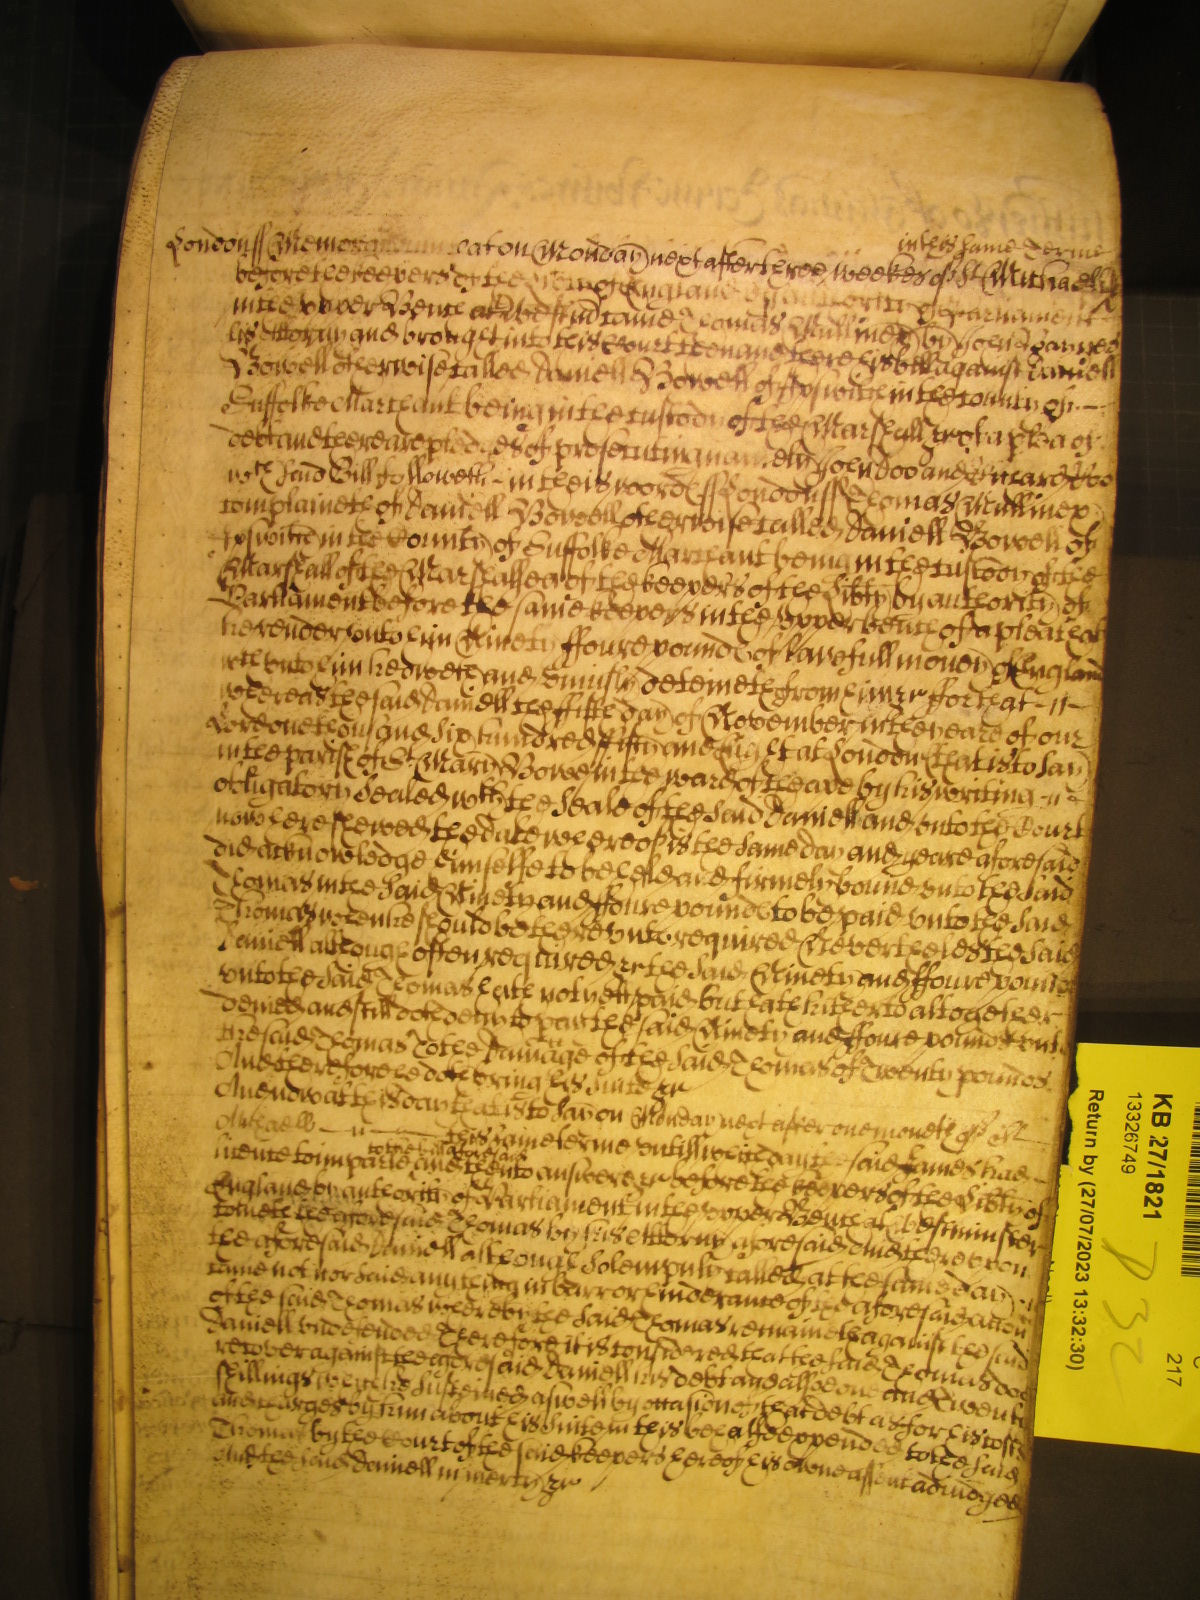 in this same Terme
Londonss Memorandum that on Monday next after three weekes of St Michaell
before the keepers of the liberty of England by authority of Parliament
in the upper Bench at Westmr came Thomas Mullinex by John
his Attorny and brought into this Court then and there his bill against Daniell
Bowell otherwise called Daniell Bowell of Ipswich in the County of
Suffolke Marchant being in the custody of the Marshall &c of a plea of
debt and there are pledges of prosecuting namely John Doo and Richard Roo
wch said Bill followeth in theis words ss Londonss Thomas Mullinex
complaineth of Daniell Bowell otherwise called Daniell Bowell of
Ipswich in the County of Suffolke Marchant being in the custody of the
Marshall of the Marshallsea of the keepers of the libty by authority of
Parliament before the same keepers in the upper bench of a plea that
he render unto him Ninety ffoure pounds of lawfull money of England
wch unto him he oweth and uniustly deteineth from him &c ffor that
whereas the said Daniell the fifth day of November in the yeare of our
Lord one thousand six hundred fifty and Eight at London that is to say
in the parish of St Mary Bowe in the ward of Cheape by his writing
obligatory sealed wth the seale of the said Daniell and unto the Court
now here shewed the date whereof is the same day and yeare aforesaid
did acknowledge himselfe to be held and firmely bound unto the said
Thomas in the said Ninety and ffoure pounds to be paid unto the said
Thomas when he should be thereunto required Neverthelesse the said
Daniell although often required &c the said Ninety and ffoure pounds
unto the said Thomas hath not yett paid but hath hitherto altogether
denied and still doth deny to pay the said Ninety and ffoure pounds unto
the said Thomas To the damage of the said Thomas of Twenty pounds
And therefore he doth bring his suite &c
And now att this day that is to say on Monday next after one moneth of St
Michaell this same terme untill which day the said James had
licence to imparle to the bill aforesaid and then to answere &c before the keepers of the libty of
England by authority of Parliament in the upper Bench at Westminster
cometh the aforesaid Thomas by his Attorny aforesaid And thereupon
the aforesaid Daniell although solempnly called at the same day
came not nor said any thing in barr or hinderance of the aforesaid action
of the said Thomas whereby the said Thomas remaineth against the said
Daniell undefended Therefore it is considered that the said Thomas doe
recover against the aforesaid Daniell his debt and allsoe one and Twenty
shillings which he susteined aswell by occasion of that debt as for his costs
and charges by him about his suite in this behalfe expended to the said
Thomas by the Court of the said keepers here of his owne assent adiudged
And the said Daniell in mercy &c
KB 27/1821
13326749
Return by (27/07/2023 13:32:30)
217